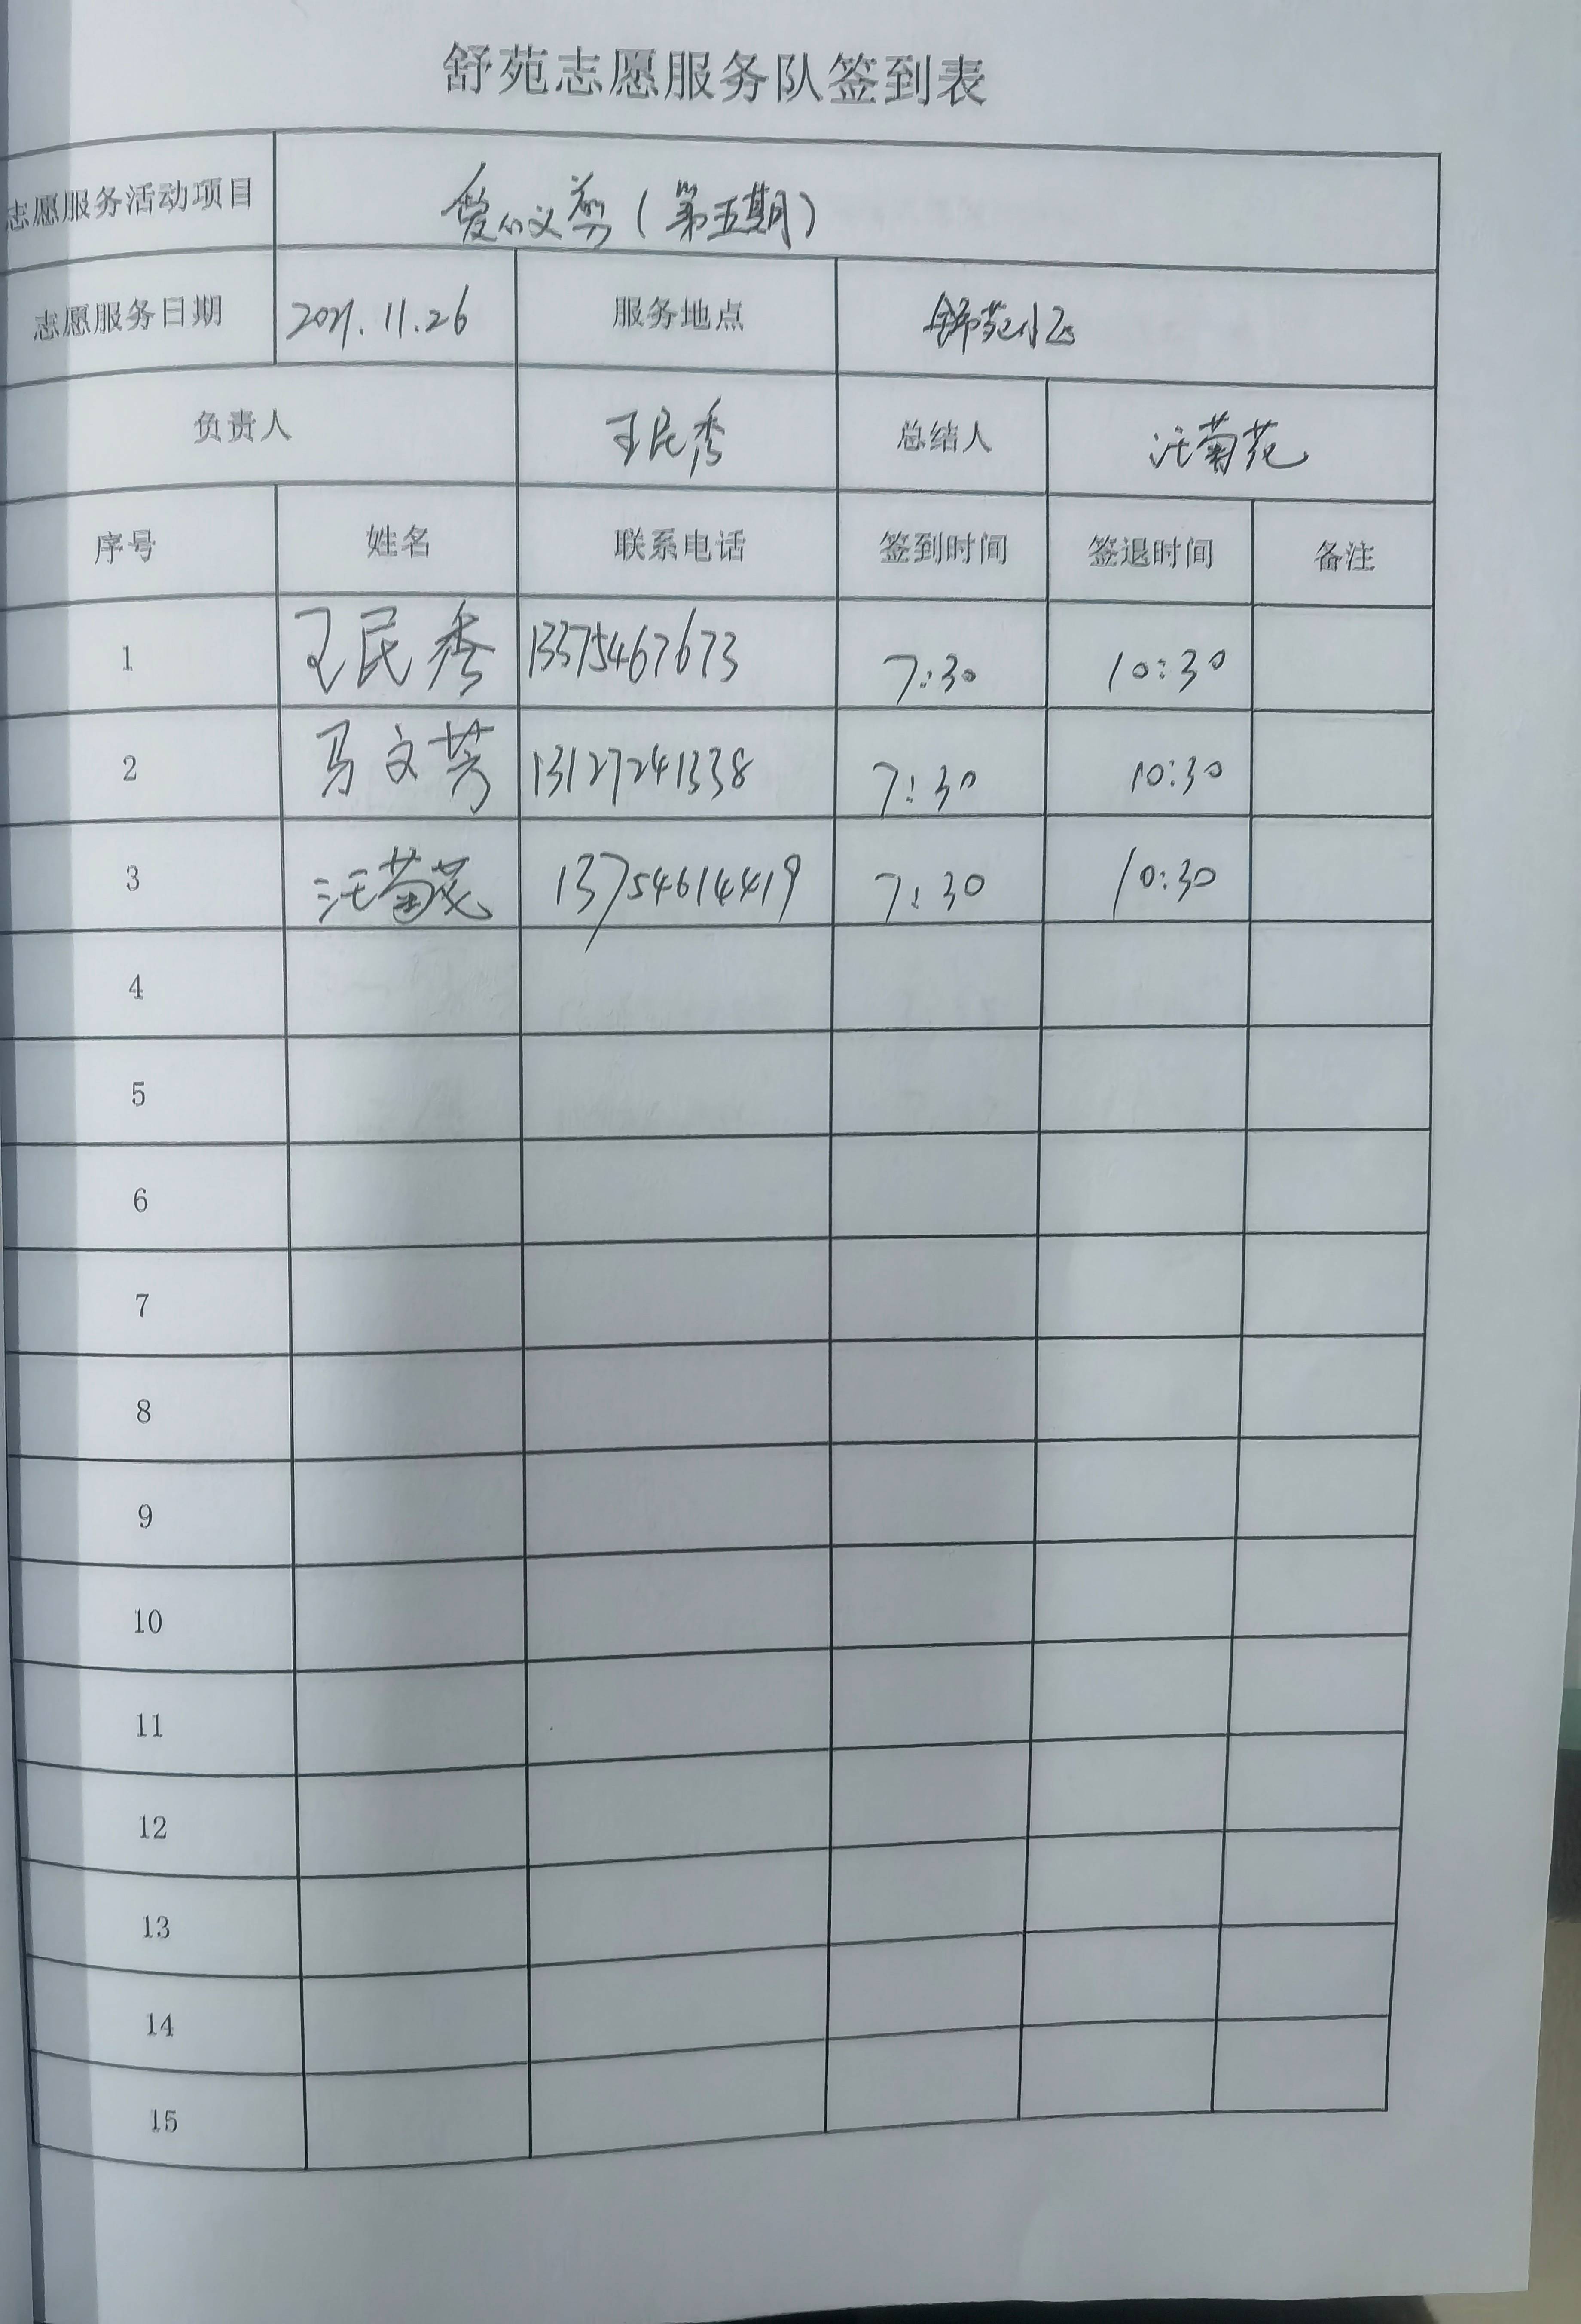 舒苑志愿服务队签到表
志愿服务活动项目 爱心义剪（第五期）
志愿服务日期 2021.11.26 服务地点 舒苑小区
负责人 王民秀 总结人 汪菊花
序号 姓名 联系电话 签到时间 签退时间 备注
1 王民秀 13375467673 7:30 10:30
2 马文芳 13127241338 7:30 10:30
3 汪菊花 13754614419 7:30 10:30
4
5
6
7
8
9
10
11
12
13
14
15